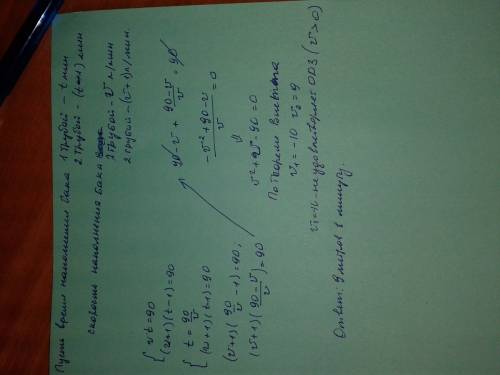 Пусть время наполнения бака 1 трубой – t мин
2 трубой – (t-1) мин
скорость наполнения бака
1 трубой – v л/мин
2 трубой – (v+1) л/мин.
{ vt=90
(v+1)(t-1)=90
{ t = 90/v
(v+1)(t-1)=90
(v+1)(90/v -1)=90;
(v+1)(90-v/v)=90
90-v + 90-v/v = 90
-v²+90-v/v = 0
⇓
v²+v-90=0
По теореме Виетта
v₁=-10 v₂=9
v₁=-10 - не удовлетворяет ОДЗ (v>0)
Ответ: 9 литров в минуту.